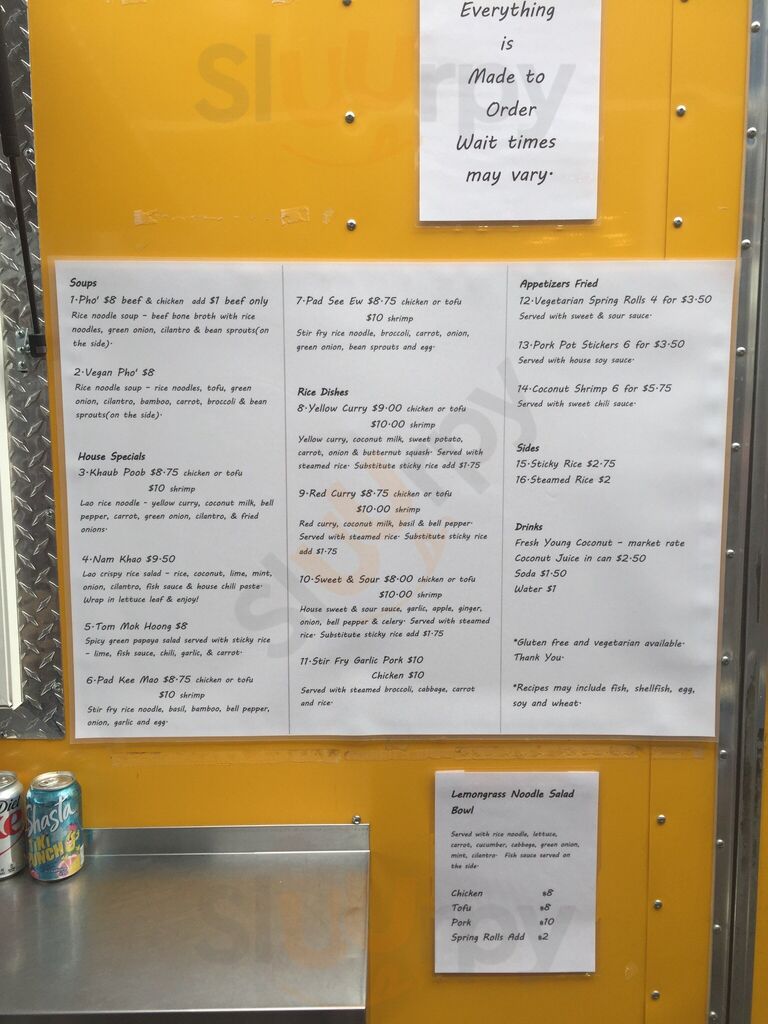 Everything
is
Made to
Order
Wait times
may vary.
Soups
1.Pho' $8 beef & chicken add $1 beef only
Rice noodle soup - beef bone broth with rice
noodles, green onion, cilantro & bean sprouts(on
the side).
2.Vegan Pho' $8
Rice noodle soup - rice noodles, tofu, green
onion, cilantro, bamboo, carrot, broccoli & bean
sprouts(on the side).
House Specials
3.Khaub Poob $8.75 chicken or tofu
$10 shrimp
Lao rice noodle - yellow curry, coconut milk, bell
pepper, carrot, green onion, cilantro, & fried
onions.
4.Nam Khao $9.50
Lao crispy rice salad - rice, coconut, lime, mint,
onion, cilantro, fish sauce & house chili paste.
Wrap in lettuce leaf & enjoy!
5.Tom Mok Hoong $8
Spicy green papaya salad served with sticky rice
- lime, fish sauce, chili, garlic, & carrot.
6.Pad Kee Mao $8.75 chicken or tofu
$10 shrimp
Stir fry rice noodle, basil, bamboo, bell pepper,
onion, garlic and egg.
7.Pad See Ew $8.75 chicken or tofu
$10 shrimp
Stir fry rice noodle, broccoli, carrot, onion,
green onion, bean sprouts and egg.
Rice Dishes
8.Yellow Curry $9.00 chicken or tofu
$10.00 shrimp
Yellow curry, coconut milk, sweet potato,
carrot, onion & butternut squash. Served with
steamed rice. Substitute sticky rice add $1.75
9.Red Curry $8.75 chicken or tofu
$10.00 shrimp
Red curry, coconut milk, basil & bell pepper.
Served with steamed rice. Substitute sticky rice
add $1.75
10.Sweet & Sour $8.00 chicken or tofu
$10.00 shrimp
House sweet & sour sauce, garlic, apple, ginger,
onion, bell pepper & celery. Served with steamed
rice. Substitute sticky rice add $1.75
11.Stir Fry Garlic Pork $10
Chicken $10
Served with steamed broccoli, cabbage, carrot
and rice.
Appetizers Fried
12.Vegetarian Spring Rolls 4 for $3.50
Served with sweet & sour sauce.
13.Pork Pot Stickers 6 for $3.50
Served with house soy sauce.
14.Coconut Shrimp 6 for $5.75
Served with sweet chili sauce.
Sides
15.Sticky Rice $2.75
16.Steamed Rice $2
Drinks
Fresh Young Coconut - market rate
Coconut Juice in can $2.50
Soda $1.50
Water $1
*Gluten free and vegetarian available.
Thank You.
*Recipes may include fish, shellfish, egg,
soy and wheat.
Lemongrass Noodle Salad
Bowl
Served with rice noodle, lettuce,
carrot, cucumber, cabbage, green onion,
mint, cilantro. Fish sauce served on
the side.
Chicken $8
Tofu $8
Pork $10
Spring Rolls Add $2
Diet
ke
Shasta
TIKI
PUNCH
Sluurpy
Sluurpy
Sluurpy